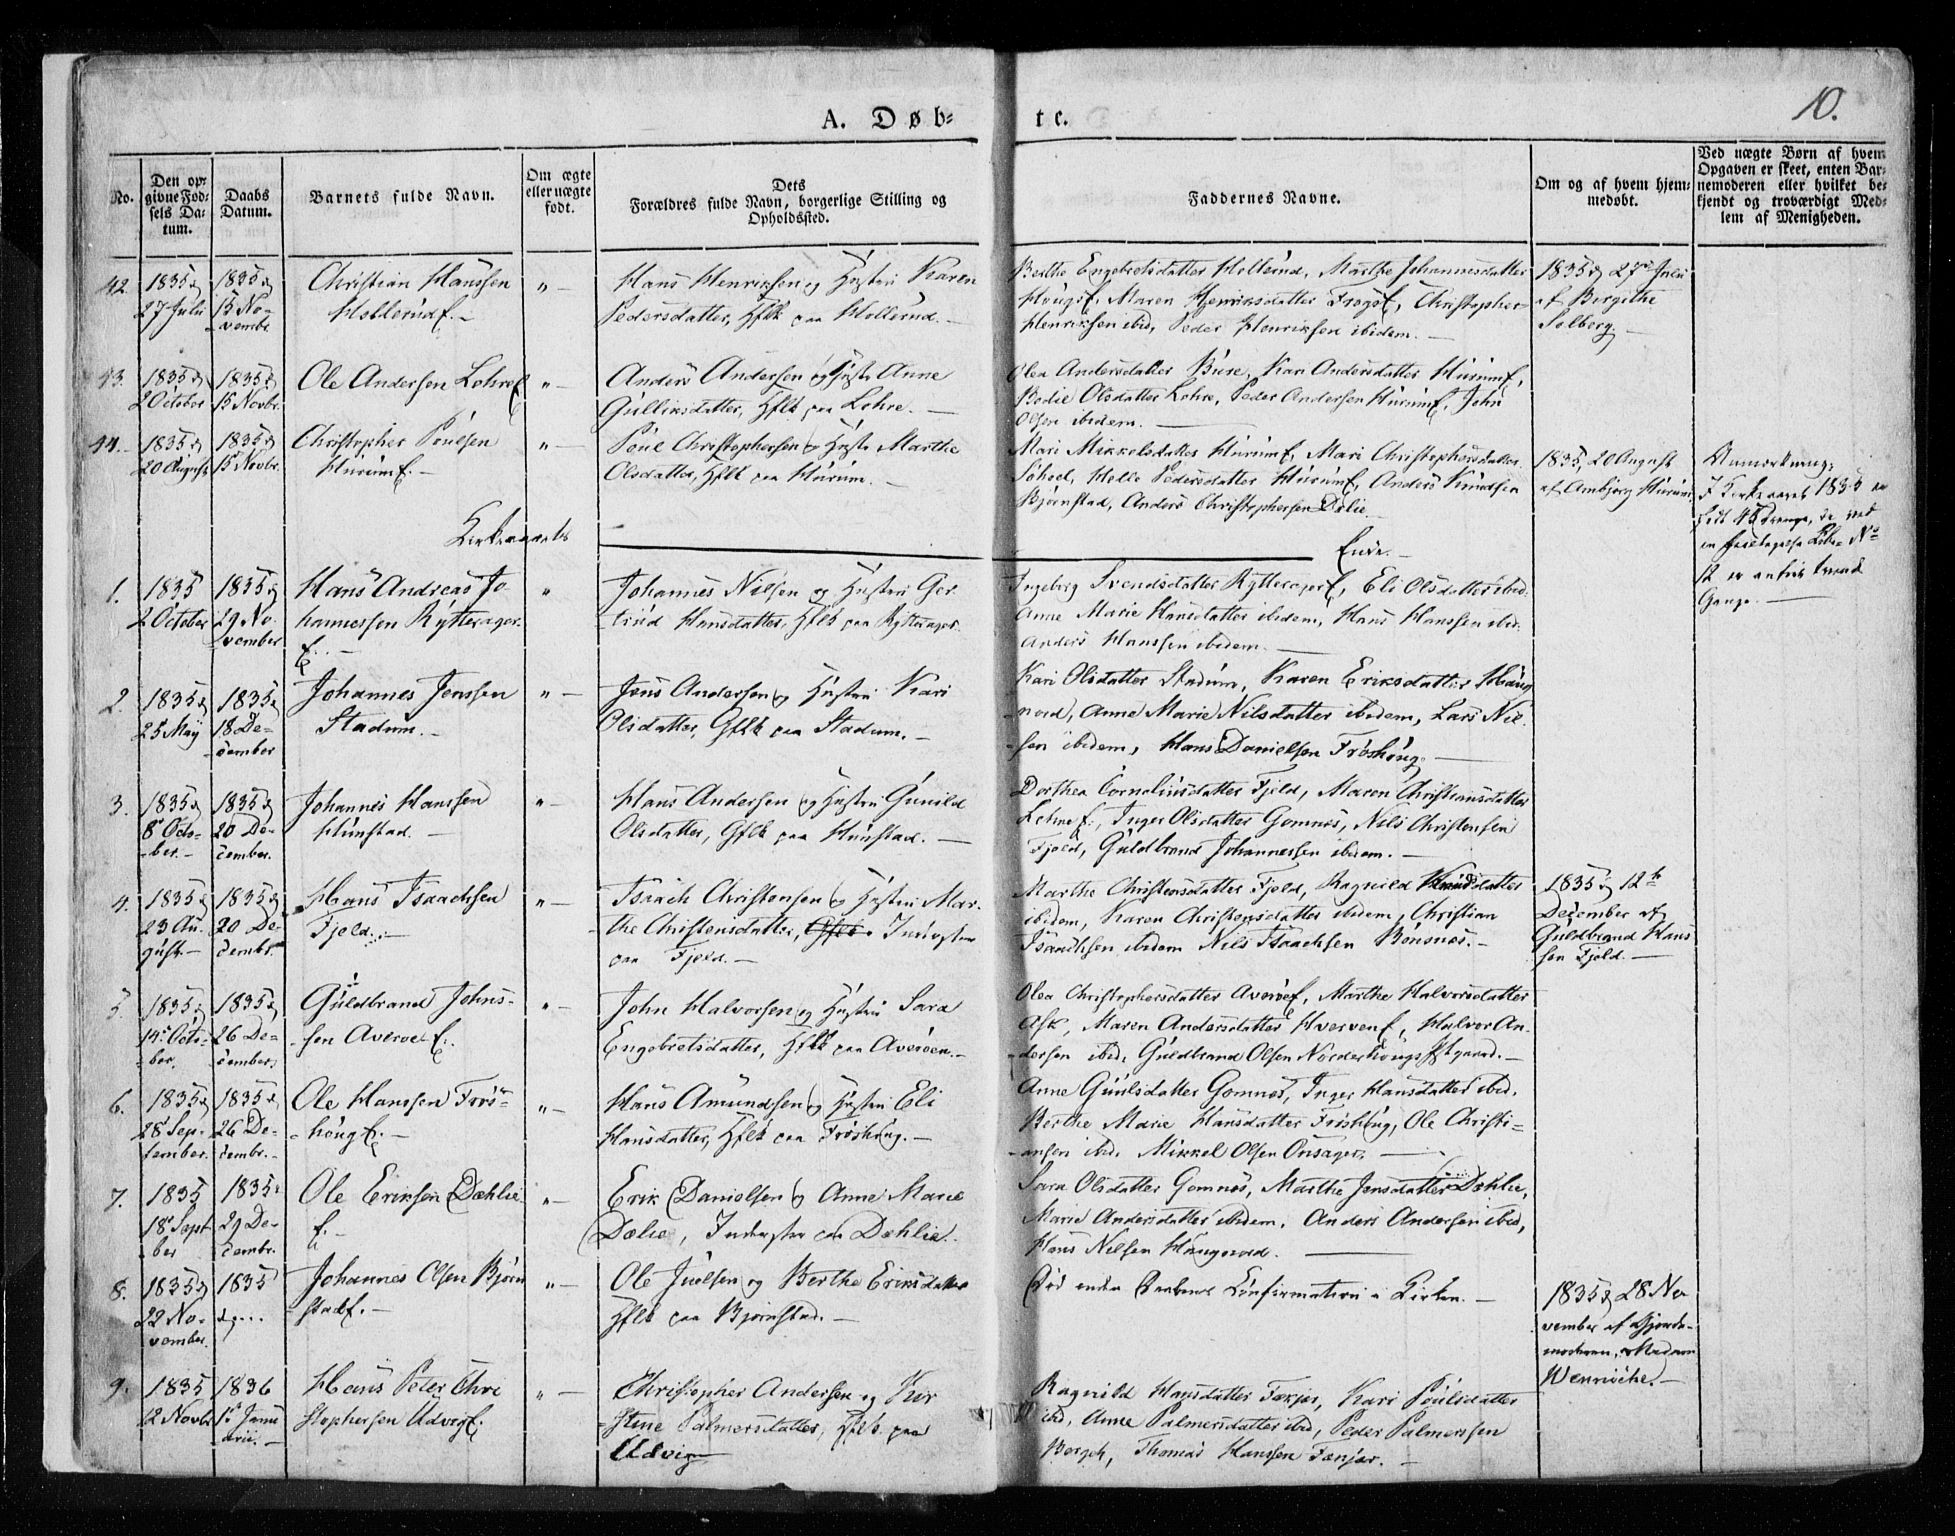 10.
A. Døb-
te.
No.
Den op-
givne Fød-
sels Da-
tum.
Daabs
Datum.
Barnets fulde Navn.
Om ægte
eller uægte
født.
Dets
Forældres fulde Navn, borgerlige Stilling og
Opholdssted.
Faddernes Navne.
Om og af hvem hjem-
medøbt.
Ved uægte Børn af hvem
Opgaven er skeet, enten Bar-
nemoderen eller hvilket be-
kjendt og troværdigt Med-
lem af Menigheden.
42.
1835
27 Julii
1835
15 No-
vembr
Christian Hanssen
Hollerud E.
Hans Henriksen og Hustru Karen
Pedersdatter, Hflk paa Hollerud.
Berthe Engebretsdatter Hollerud, Marthe Johannesdatter
Maren Henriksdatter Christopher
Henriksen ibid, Peder Henriksen ibidem.
1835 27de Julii
af Bergithe
Solberg.
43.
1835
2 October
1835
15 Novbr.
Ole Andersen Lohre
Anders Andersen og Hustru Anne
Gulliksdatter, Hflk paa Lohre.
Olea Andersdatter Bure, Kari Andersdatter Hurum E,
Bodie Olsdatter Lohre, Peder Andersen Hurum E, John
Olsen ibidem.
44.
1835
20 August
1835
15 Novbr.
Christopher Poulsen
Hurum E.
Poul Christophersen og Hustru Marthe
Olsdatter, Hflk paa Hurum.
Mari Mikkelsdatter Hurum E, Mari Christophersdatter
Helle Pedersdatter Hurum E, Anders Knudsen
Bjørnstad, Anders Christophersen Dælie.
1835, 20 August
af Ambjørg Hurum
Anmærkning:
I Kirkeaaret 1835 er
født 48 Drenge, da ved
en No
12 er anført tvende
Gange.
Kirkeaarets
Ende.
1.
1835
2 October
1835
29 No-
vember
Hans Andreas Jo-
hannessen Rytterager
E.
Johannes Nilsen og Hustru Ger-
trud Hansdatter, Hflk paa Rytterager.
Ingeborg Svendsdatter Rytterager E, Eli Olsdatter ibid.
Anne Marie Hansdatter ibidem, Hans Hanssen ibid.
Anders Hanssen ibidem.
2.
1835
25 May
1835
18 De-
cember
Johannes Jenssen
Stadum.
Jens Andersen og Hustru Kari
Olsdatter, Gflk paa Stadum.
Kari Olsdatter Stadum, Karen Eriksdatter Haug-
nord, Anne Marie Nilsdatter ibidem, Lars Nil-
sen ibidem, Hans Danielsen Frøshoug.
3.
1835
8de Octo-
ber.
1835
20 De-
cember.
Johannes Hanssen
Hunstad.
Hans Andersen og Hustru Gunild
Olsdatter, Gflk paa Hunstad.
Dorthea Corneliusdatter Fjeld, Maren Christiansdatter
Lehne E., Inger Olsdatter Gomnæs, Nils Christensen
Fjeld, Guldbrand Johannessen ibidem.
4.
1835
23 Au-
gust.
1835
20 De-
cembr.
Hans Isaachsen
Fjeld.
Isaach Christensen og Hustru Mar-
the Christensdatter, Inderster
paa Fjeld.
Marthe Christensdatter Fjeld, Ragnild Knudsdatter
ibidem, Karen Christensdatter ibidem, Christian
Isaachsen ibidem Nils Isaachsen Bønsnæs.
1835 12te
December af
Guldbrand Hans-
sen Fjeld.
5.
1835
14de Octo-
ber.
1835
26 De-
cember.
Guldbrand Johns-
sen Averøe E.
John Halvorsen og Hustru Sara
Engebretsdatter, Hflk paa Averøen.
Olea Christophersdatter Averøe E, Marthe Halvorsdatter
Ask, Maren Andersdatter Hverven E, Halvor An-
dersen ibid, Guldbrand Olsen Norderhougs Pstgaard.
6.
1835
28 Sep-
tember.
1835
26 De-
cembr.
Ole Hanssen Frøs-
houg E.
Hans Amundsen og Hustru Eli
Hansdatter, Hflk paa Frøshoug.
Anne Guulsdatter Gomnæs, Inger Hansdatter ibid.
Berthe Marie Hansdatter Frøshoug, Ole Christi-
ansen ibid, Mikkel Olsen Onsager.
7.
1835
18 Sept-
ber
1835
29 De-
cembr.
Ole Eriksen Dæhlie
E.
Erik Danielsen og Anne Marie
Dælie, Inderster paa Dæhlie.
Sara Olsdatter Gomnæs, Marthe Jensdatter Dæhlie,
Marie Andersdatter ibidem, Anders Andersen ibid,
Hans Nilsen Haugnord.
8.
1835
22 No-
vember.
1835
Johannes Olsen Bjørn-
stad E.
Ole Juelsen og Berthe Eriksdatter
Hflk paa Bjørnstad.
Død inden Daabens Confirmation i Kirken.
1835 28 No-
vember af Gjorde-
moderen, Madam
Wenniche.
9.
1835
12 Novbr
1836
1ste Janu-
arii.
Hans Peter Chri-
stophersen Udvig E.
Christopher Andersen og Kir-
stine Palmersdatter, Hflk paa
Udvig
Ragnild Hansdatter Fækjær, Kari Poulsdatter
ibid, Anne Palmersdatter ibid, Peder Palmerssen
Borgen, Thomas Hanssen Fækjær.